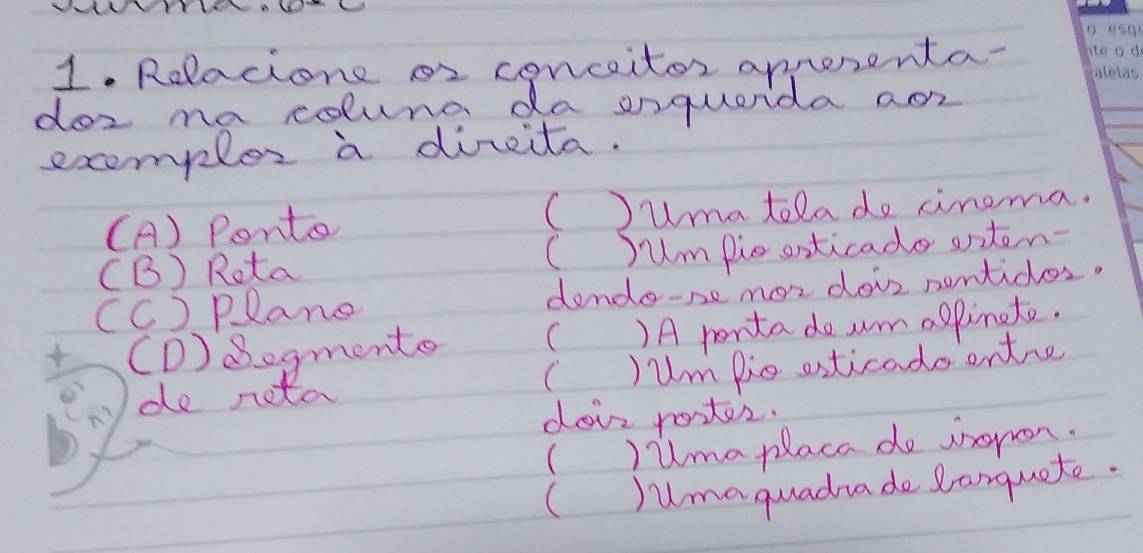 1. Relacione os conceitos apresenta-
dos na coluna da esquerda aos
exemplos à direita.
(A) Ponto
(B) Reta
(C) Plano
(D) Segmento
de reta
( ) Uma tela de cinema.
( ) Um fio esticado esten-
dendo-se nos dois sentidos.
( ) A ponta de um alfinete.
( ) Um fio esticado entre
dois postes.
( ) Uma placa de isopor.
( ) Uma quadra de basquete.